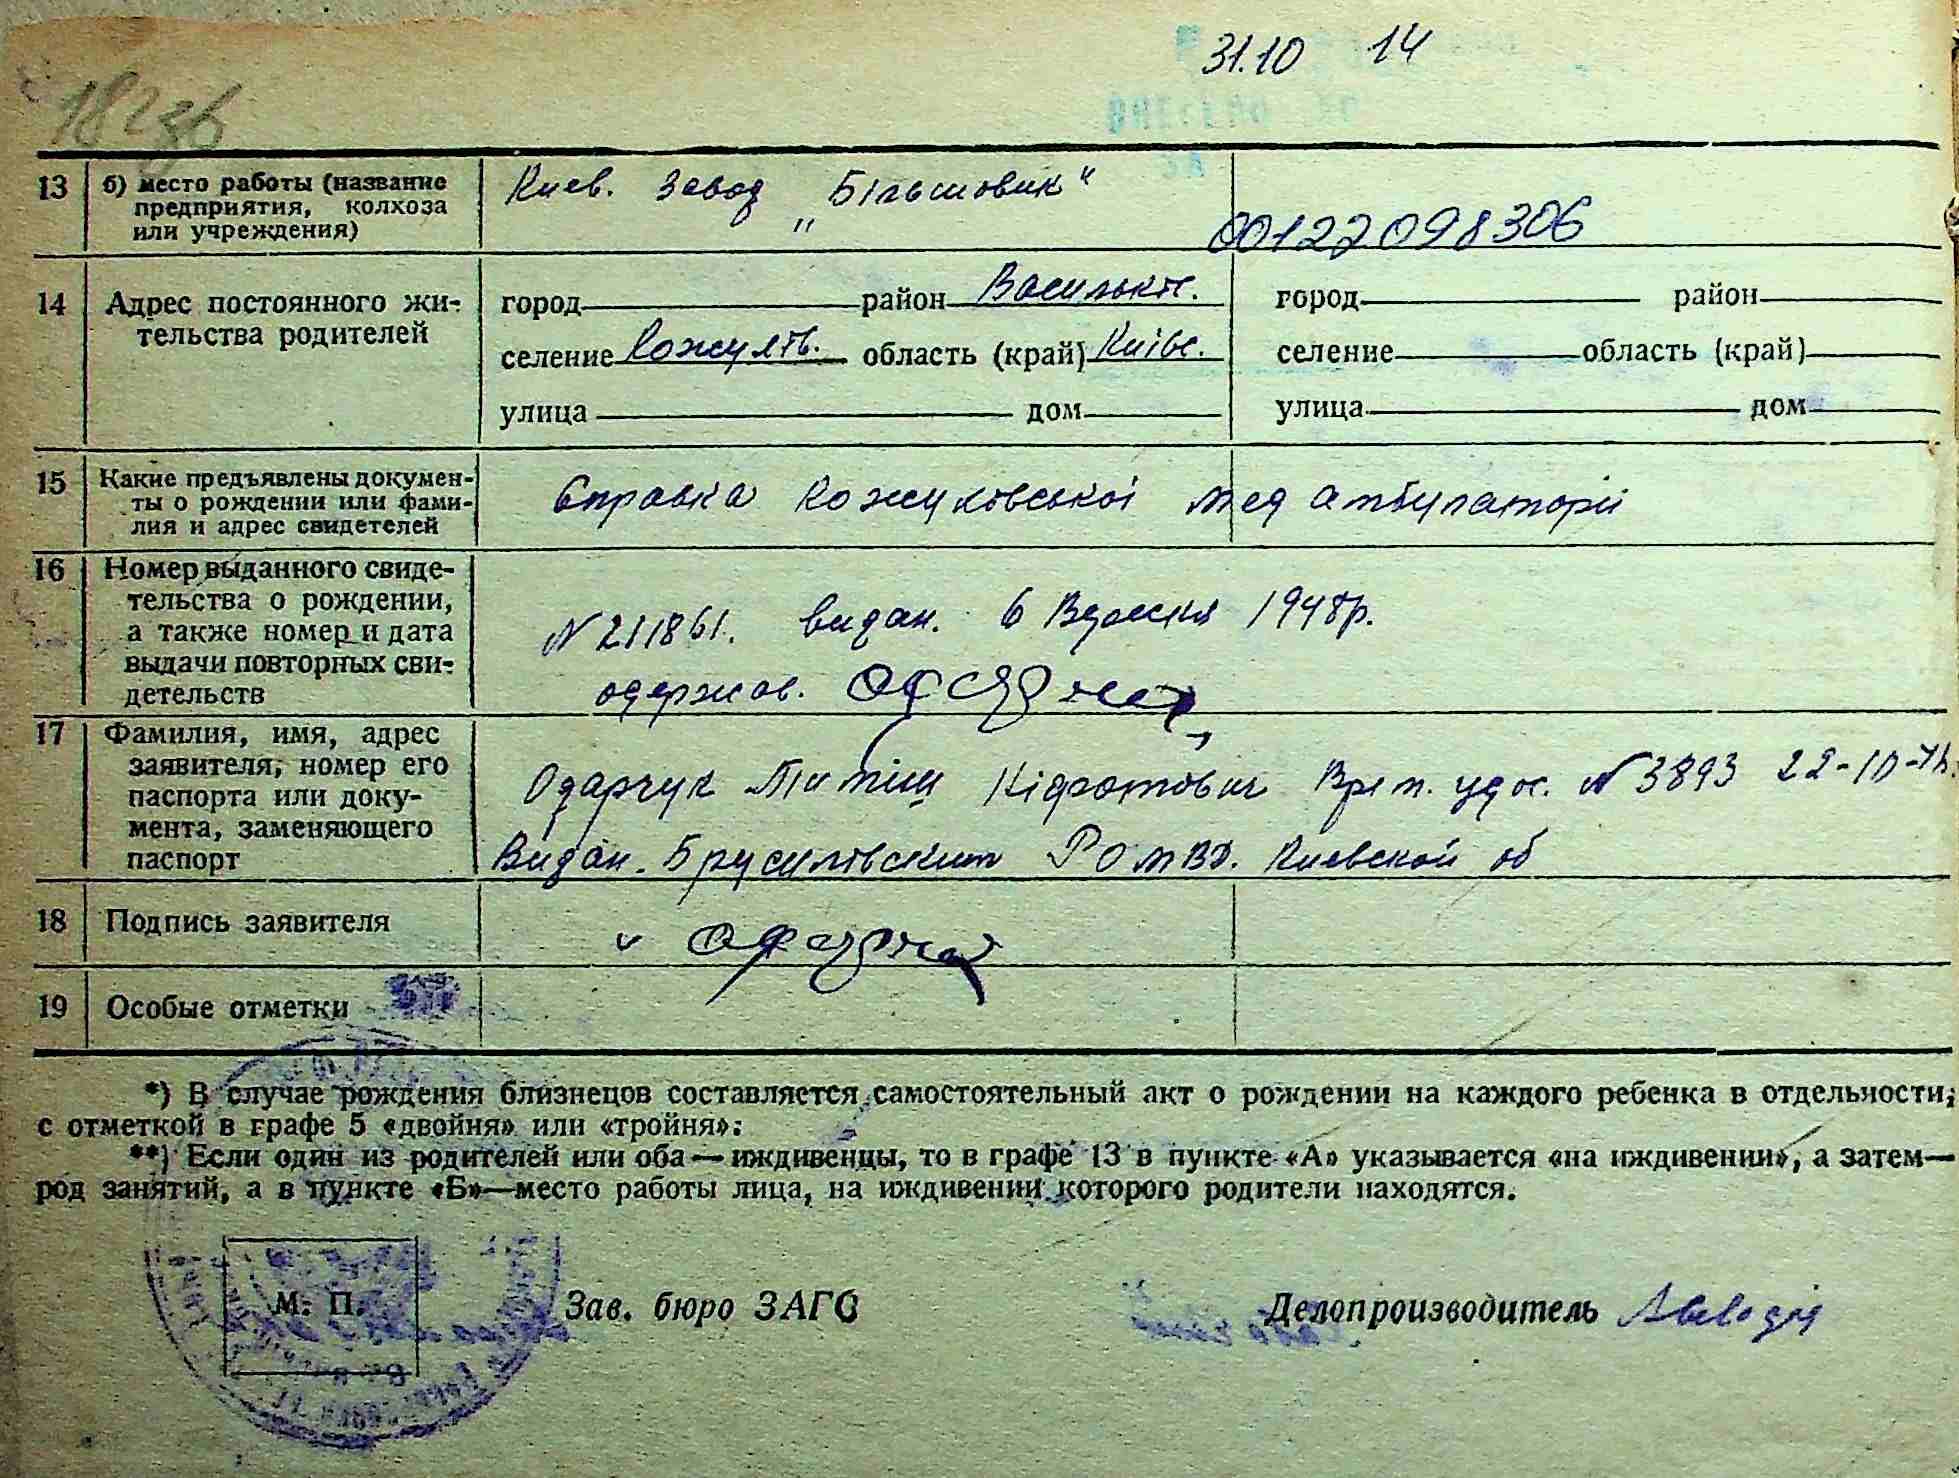 31.10 14
18
13 б) место работы (название Киев. Завод „Більшовик"
предприятия, колхоза
или учреждения) 00122098306
14 Адрес постоянного жи- город район Васильків. город район
тельства родителей селение область (край) Київс. селение область (край)
улица дом улица дом
15 Какие предъявлены докумен-
ты о рождении или фами-
лия и адрес свидетелей
Справка Кожухівської мед амбулаторіі
16 Номер выданного свиде-
тельства о рождении,
а также номер и дата
выдачи повторных сви-
детельств
N 211861. видан. 6 Вересня 1948р.
одержав.
17 Фамилия, имя, адрес
заявителя, номер его
паспорта или доку-
мента, заменяющего
паспорт
Одарчук Кідратович Врем. удос. N 3893 22-10-
Видан. Брусилівским РО МВД. Киевской об
18 Подпись заявителя
19 Особые отметки
*) В случае рождения близнецов составляется самостоятельный акт о рождении на каждого ребенка в отдельности,
с отметкой в графе 5 «двойня» или «тройня».
**) Если один из родителей или оба — иждивенцы, то в графе 13 в пункте «А» указывается «на иждивении», а затем—
род занятий, а в пункте «Б»—место работы лица, на иждивении которого родители находятся.
М. П. Зав. бюро ЗАГС Делопроизводитель